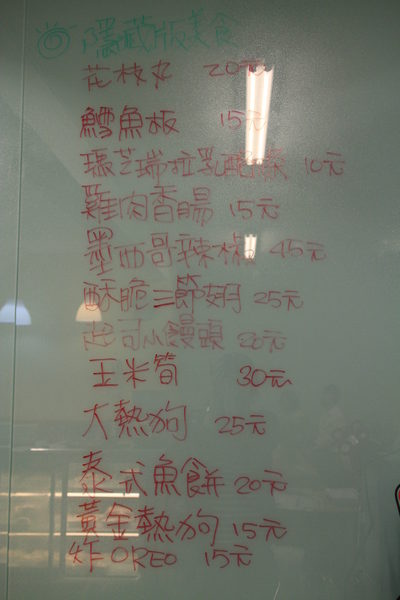 ◎ 隱藏版美食
花枝丸 20元
鱈魚板 15元
瑞拉乳酪 10元
雞肉香腸 15元
墨西哥辣椒 45元
酥脆三節翅 25元
起司小饅頭 20元
玉米筍 30元
大熱狗 25元
泰式魚餅 20元
黃金熱狗 15元
炸OREO 15元